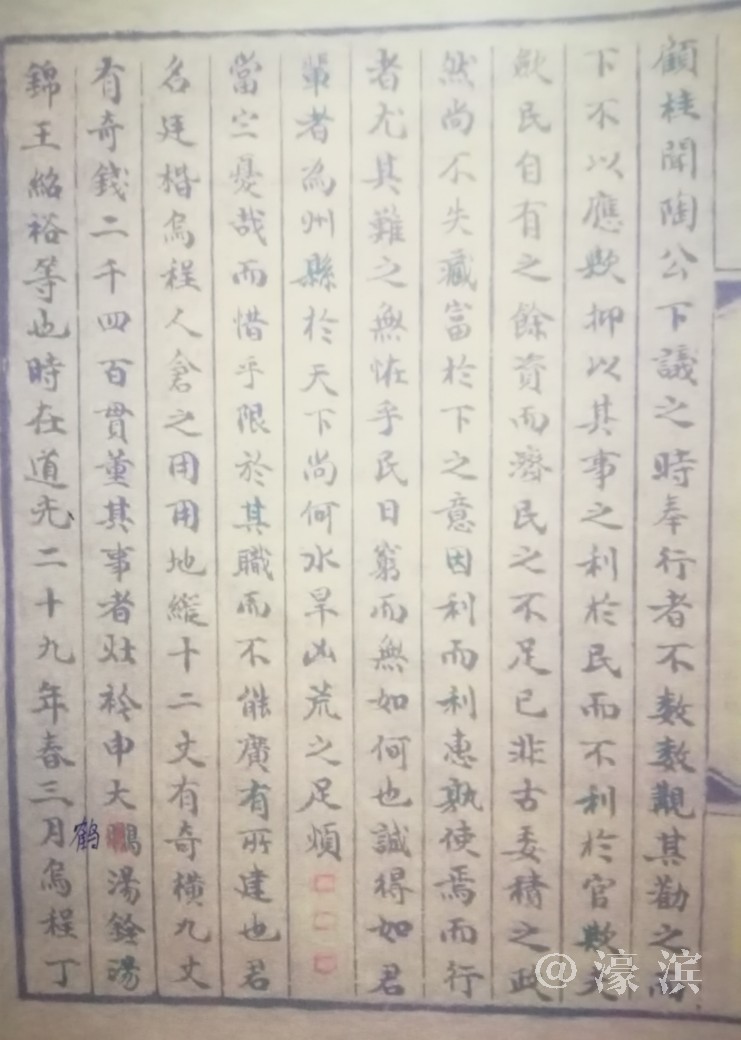 顧桂聞陶公下議之時奉行者不數數觀其勸之而
下不以應歟抑以其事之利於民而不利於官歟夫
歛民自有之餘資而濟民之不足已非古委積之政
然尚不失藏富於下之意因利而利惠孰使焉而行
者尤其難之無怪乎民日窮而無如何也誠得如君
輩者為州縣於天下尚何水旱凶荒之足煩□□□
當空憂哉而惜乎限於其職而不能廣有所建也君
名廷楷烏程人倉之用用地縱十二丈有奇橫九丈
有奇錢二千四百貫董其事者灶衿申大鵬湯銓湯
鹤
錦王紹裕等也時在道光二十九年春三月烏程丁
@濠滨